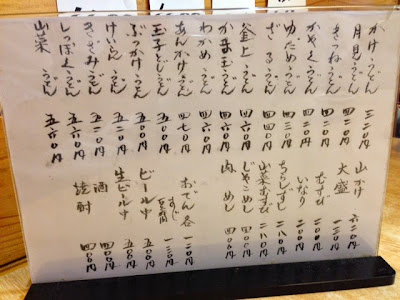 かけうどん 三二〇円
月見うどん 四二〇円
きつねうどん 四二〇円
かやくうどん 四二〇円
ゆだめうどん 四三〇円
ざるうどん 四四〇円
釜上うどん 四四〇円
かま玉うどん 四六〇円
わかめうどん 四六〇円
あんかけうどん 四七〇円
玉子とじうどん 五〇〇円
ぶっかけうどん 五〇〇円
けいらんうどん 五二〇円
きざみうどん 五二〇円
しっぽくうどん 五六〇円
山菜うどん 五六〇円
山かけ 六二〇円
大盛 一二〇円
むすび 二〇〇円
いなり 二〇〇円
ちらしずし 二八〇円
山菜むすび 二八〇円
じゃこめし
肉めし 四〇〇円
おでん各 一二〇円
すじ
豆腐 一三〇円
ビール中 五〇〇円
生ビール中 五〇〇円
酒 四〇〇円
焼酎 四〇〇円